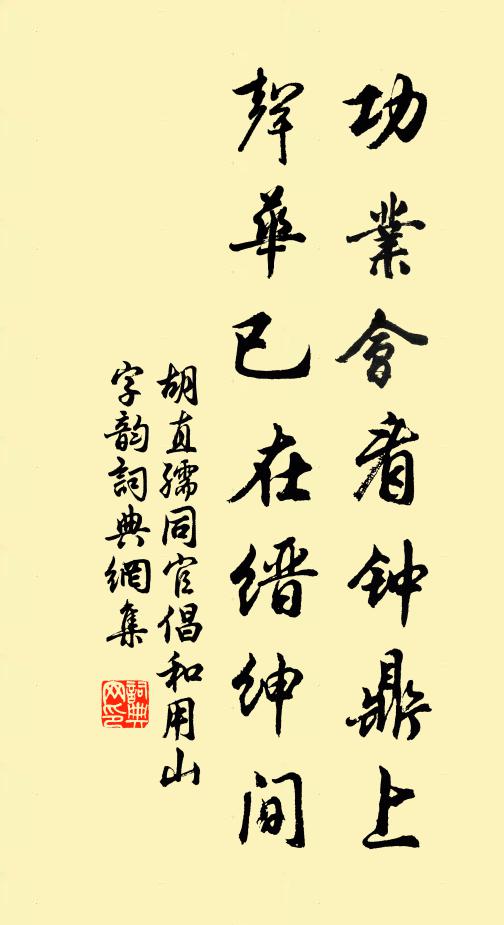 功業會看钟鼎上
聲華已在缙绅間
胡直孺同官倡和用山
字韵詞典網集
詞典網印